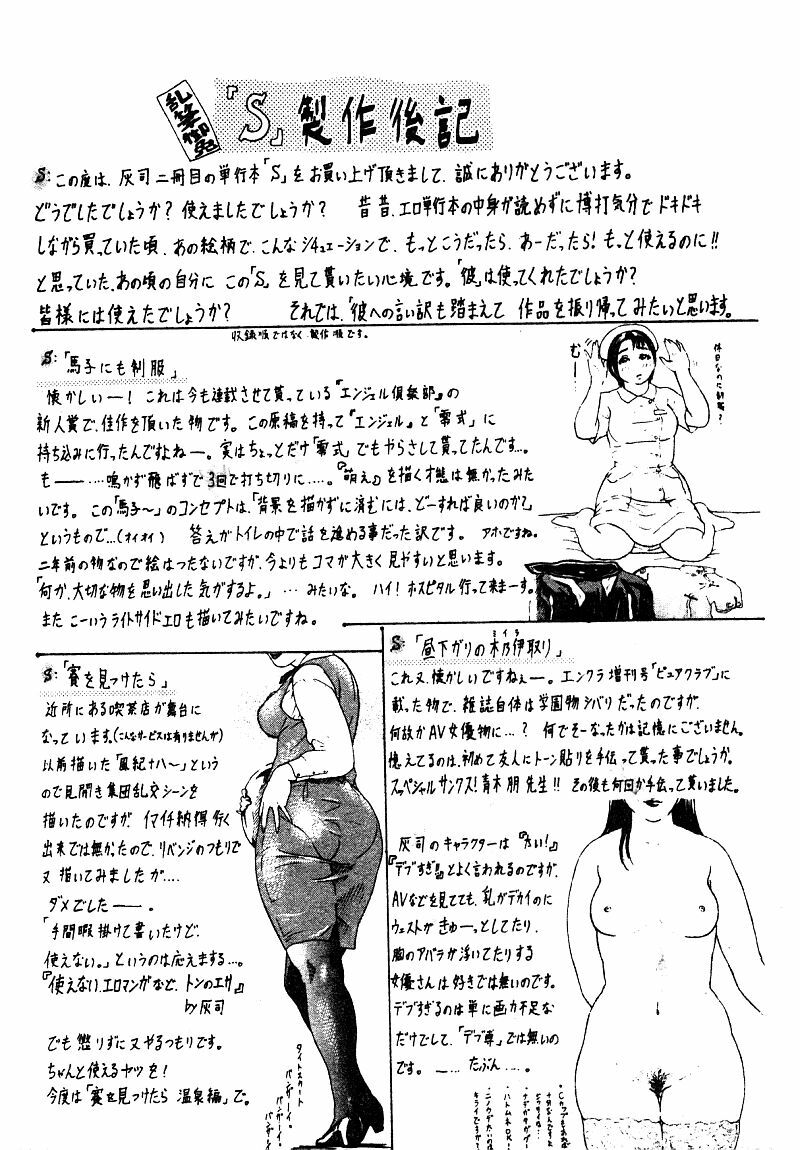 乱筆御免
『S』製作後記
S:この度は、灰司二冊目の単行本「S」をお買い上げ頂きまして、誠にありがとうございます。
どうでしたでしょうか？使えましたでしょうか？ 昔昔、エロ単行本の中身が読めずに博打気分でドキドキ
しながら買っていた頃、あの絵柄で、こんなシチュエーションで、もっとこうだったら、あーだったら！もっと使えるのに!!
と思っていた、あの頃の自分に この「S」を見て貰いたい心境です。「彼」は使ってくれたでしょうか？
皆様には使えたでしょうか？ それでは、「彼」への言い訳も踏まえて 作品を振り帰ってみたいと思います。
収録順ではなく、製作順です。
S:「馬子にも制服」
懐かしいー！これは今も連載させて貰っている『エンジェル倶楽部』の
新人賞で、佳作を頂いた物です。この原稿を持って『エンジェル』と『零式』に
持ち込みに行ったんですよねー。実はちょっとだけ『零式』でもやらさして貰ってたんです…。
もー……鳴かず飛ばずで3回で打ち切りに……。『萌え』を描く才態は無かったみた
いです。この「馬子〜」のコンセプトは、「背景を描かずに済むには、どーすれば良いのか？」
というもので…（オイオイ） 答えがトイレの中で話を進める事だった訳です。アホですね。
二年前の物なので絵はつたないですが、今よりもコマが大きく見やすいと思います。
「何か、大切な物を思い出した気がするよ。」…みたいな。ハイ！ホスピタル行って来まーす。
また こーいうライトサイドエロも描いてみたいですね。
むー
休日なのに制服？
S:「賽を見つけたら」
近所にある喫茶店が舞台に
なっています。（こんなサービスは有りませんが）
以前描いた「風紀ナハ〜」という
ので見開き集団乱交シーンを
描いたのですが、イマイチ納得行く
出来では無かったので、リベンジのつもりで
又描いてみましたが….
ダメでしたー。
「手間暇掛けて書いたけど、
使えない。」というのは応えまする…。
『使えない、エロマンガなど、トンのエサ』
by灰司
でも懲りずに又やるつもりです。
ちゃんと使えるヤツを！
今度は「賽を見つけたら 温泉編」で。
タイトスカート
バンザーイ。
バンザーイ。
バンザーイ
S:「昼下がりの木乃伊取り」
ミイラ
これ又、懐かしいですねぇー。エンクラ増刊号「ピュアクラブ」に
載った物で、雑誌自体は学園物シバリだったのですが、
何故かAV女優物に…？何でそーなったかは記憶にございません。
憶えてるのは、初めて友人にトーン貼りを手伝って貰った事でしょうか。
スッペシャルサンクス！青木朋先生!! その後も何回か手伝って貰いました。
灰司のキャラクターは『太い！』
『デブすぎ!!』とよく言われるのですが、
AVなどを見てても、乳がデカイのに
ウエストがきゅーっとしてたり、
胸のアバラが浮いてたりする
女優さんは好きでは無いのです。
デブすぎるのは単に画力不足な
だけでして、「デブ専」では無いの
です。ー…たぶん…。
・ハトムネOK！
キライですが？